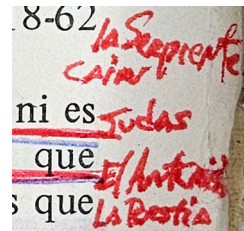 18-62
la Serpiente
Cain
ni es Judas
que El Antcris
s que La Bestia